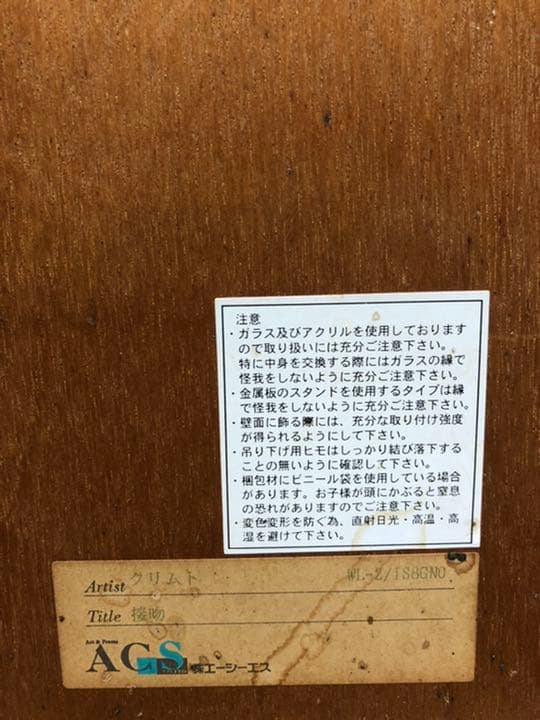 注意
・ガラス及びアクリルを使用しております
ので取り扱いには充分ご注意下さい。
特に中身を交換する際にはガラスの縁で
怪我をしないように充分ご注意下さい。
・金属板のスタンドを使用するタイプは縁
で怪我をしないように充分ご注意下さい。
・壁面に飾る際には、充分な取り付け強度
が得られるようにして下さい。
・吊り下げ用ヒモはしっかり結び落下する
ことの無いように確認して下さい。
・梱包材にビニール袋を使用している場合
があります。お子様が頭にかぶると窒息
の恐れがありますのでご注意下さい。
・変色変形を防ぐ為、直射日光・高温・高
湿を避けて下さい。
Artist クリムト WL-2/IS8GNO
Title 接吻
Art & Frame
ACS ㈱エーシーエス